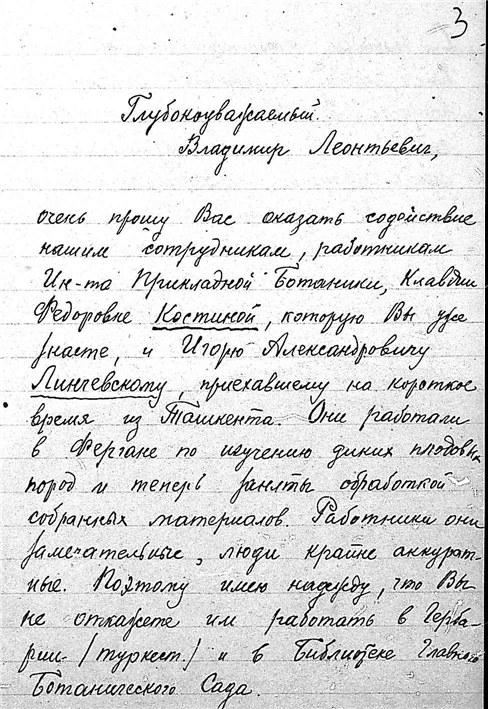 3
Глубокоуважаемый.
Владимир Леонтьевич,
очень прошу Вас оказать содействие
нашим сотрудникам, работникам
Ин-та Прикладной Ботаники, Клавдии
Федоровне Костиной, которую Вы уже
знаете, и Игорю Александровичу
Линчевскому, приехавшему на короткое
время из Ташкента. Они работали
в Фергане по изучению диких плодовых
пород и теперь заняты обработкой
собранных материалов. Работники они
замечательные, люди крайне аккурат-
ные. Поэтому имею надежду, что Вы
не откажете им работать в Герба-
рии /туркест./ и в Библиотеке Главного
Ботанического Сада.